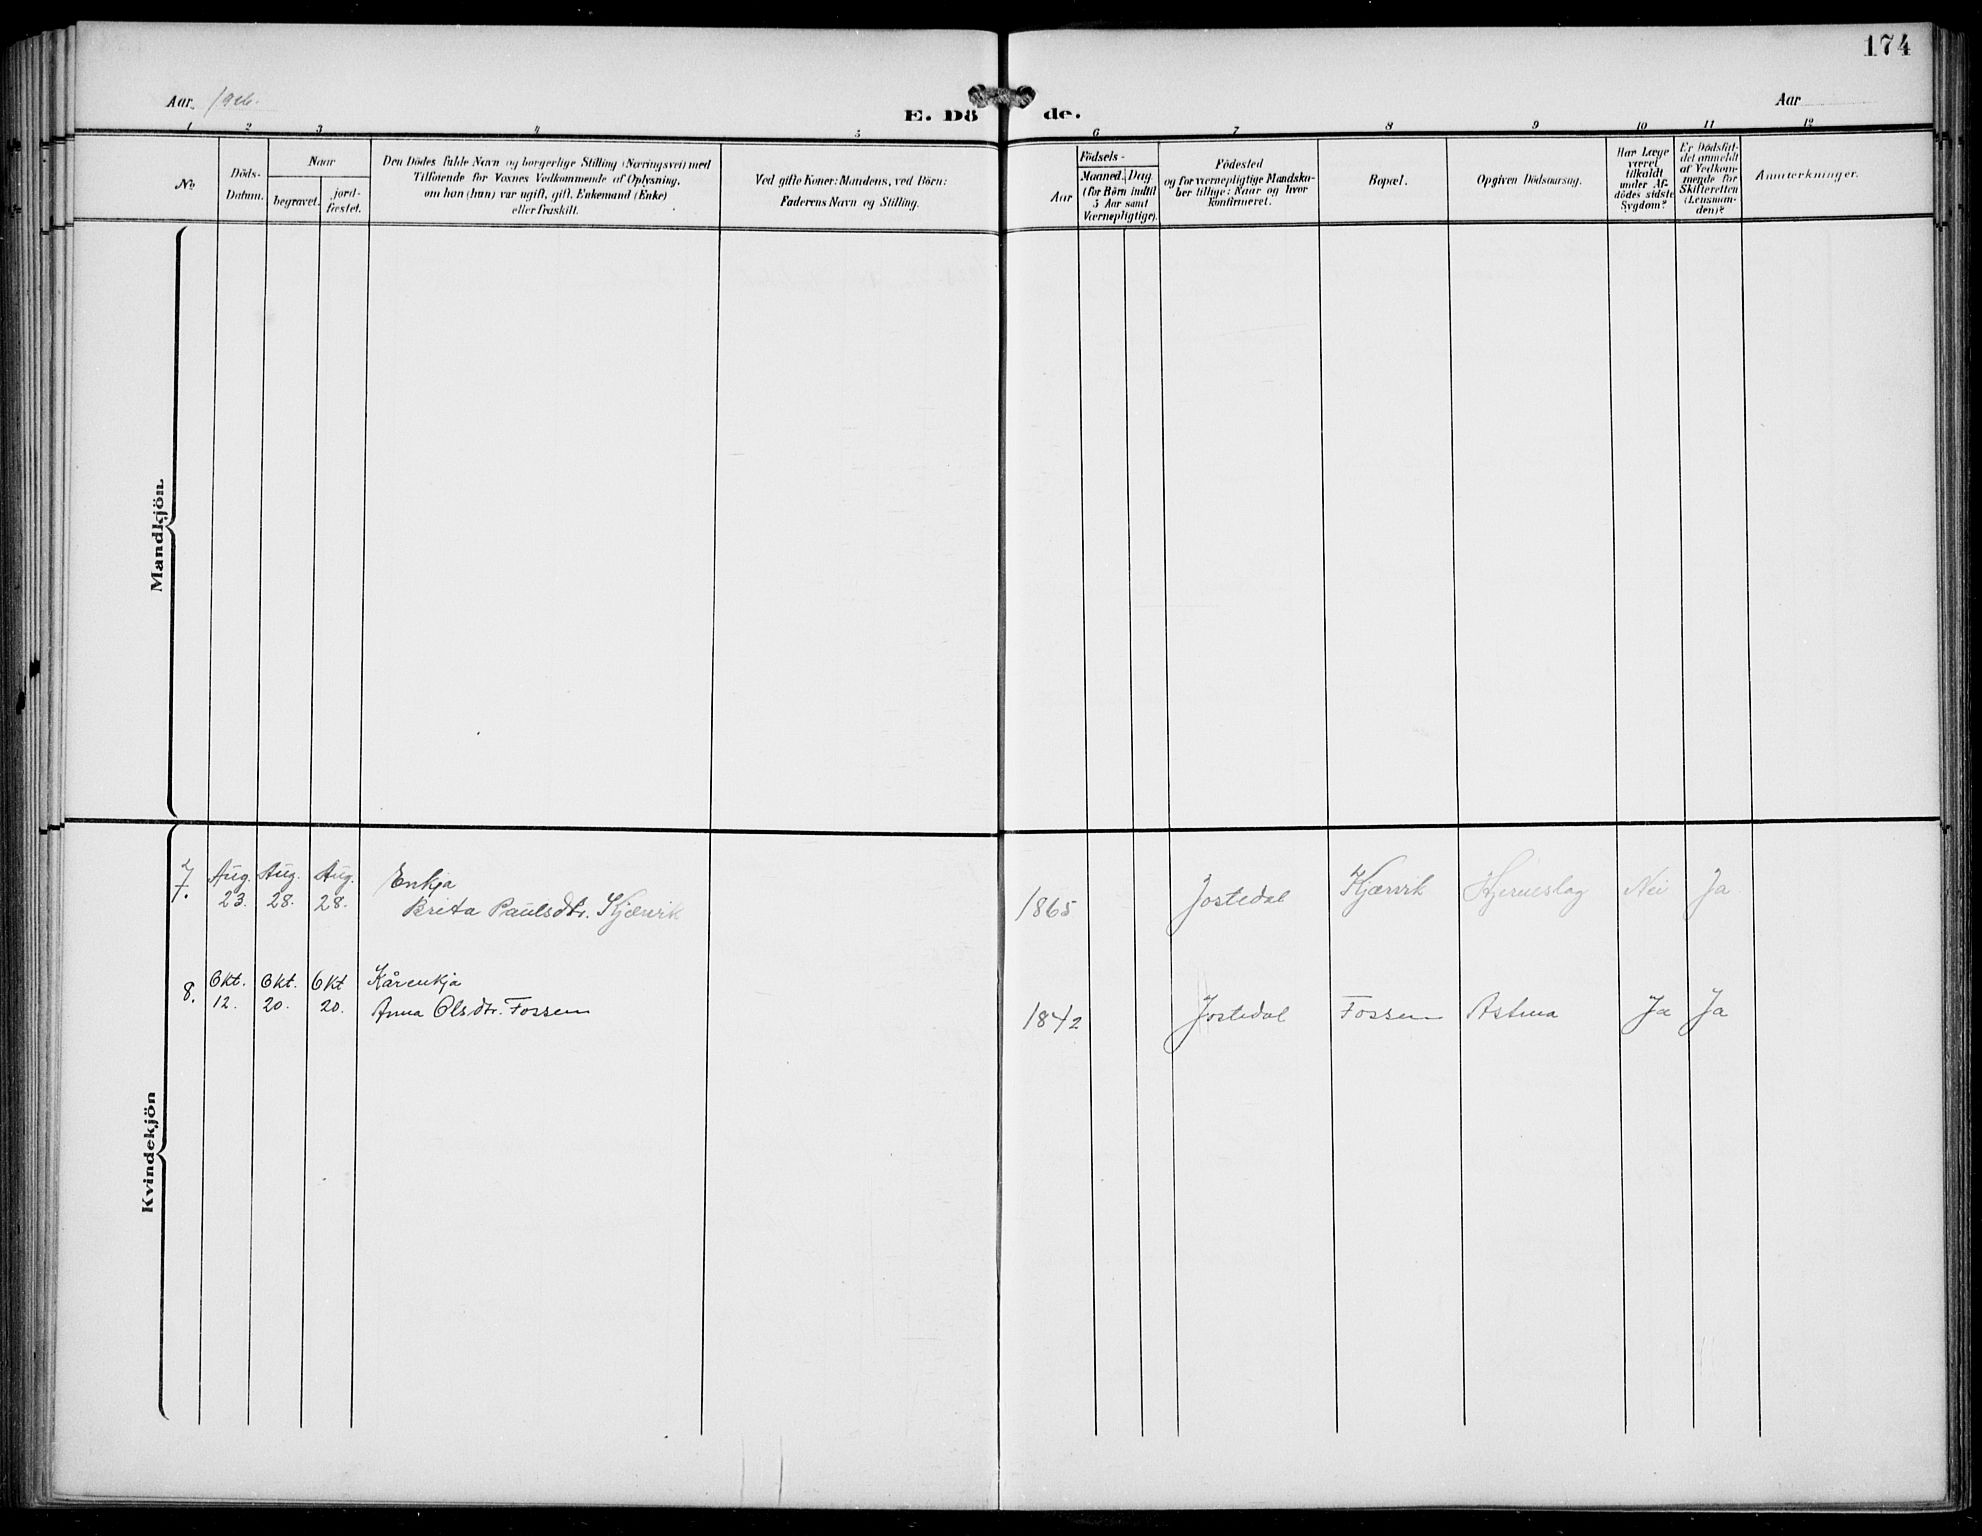 174
Aar 1926.
Aar
E. Dö de.
1 2 3 4 5 6 7 8 9 10 11 12
No
Döds-
Datum.
Naar
begravet.
jord-
fæstet.
Den Dödes fulde Navn og borgerlige Stilling (Næringsvei) med
Tilföiende for Voxnes Vedkommende af Oplysning,
om han (hun) var ugift, gift, Enkemand (Enke)
eller fraskilt.
Ved gifte Koner: Mandens, ved Börn:
Faderens Navn og Stilling.
Aar
Födsels-
Maaned. Dag
(for Börn indtil
5 Aar samt
Værnepligtige).
Födested
og for værnepligtige Mandska-
ber tillige: Naar og hvor
konfirmeret.
Bopæl.
Opgiven Dödsaarsag.
Har Læge
været
tilkaldt
under Af-
dödes sidste
Sygdom?
Er Dödsfal-
det anmeldt
af Vedkom-
mende for
Skifteretten
(Lensman-
den)?
Anmærkninger.
Mandkjön.
Kvindekjön
7. Aug. Aug. Aug. Enkja
23. 28. 28. Brita Paulsdtr. Kjærvik 1865 Jostedal Kjærvik Hjerneslag Nei Ja
8. Okt. Okt. Okt Kårenkja
12. 20. 20. Anna Olsdtr. Fossen 1842 Jostedal Fossen Astma Ja Ja